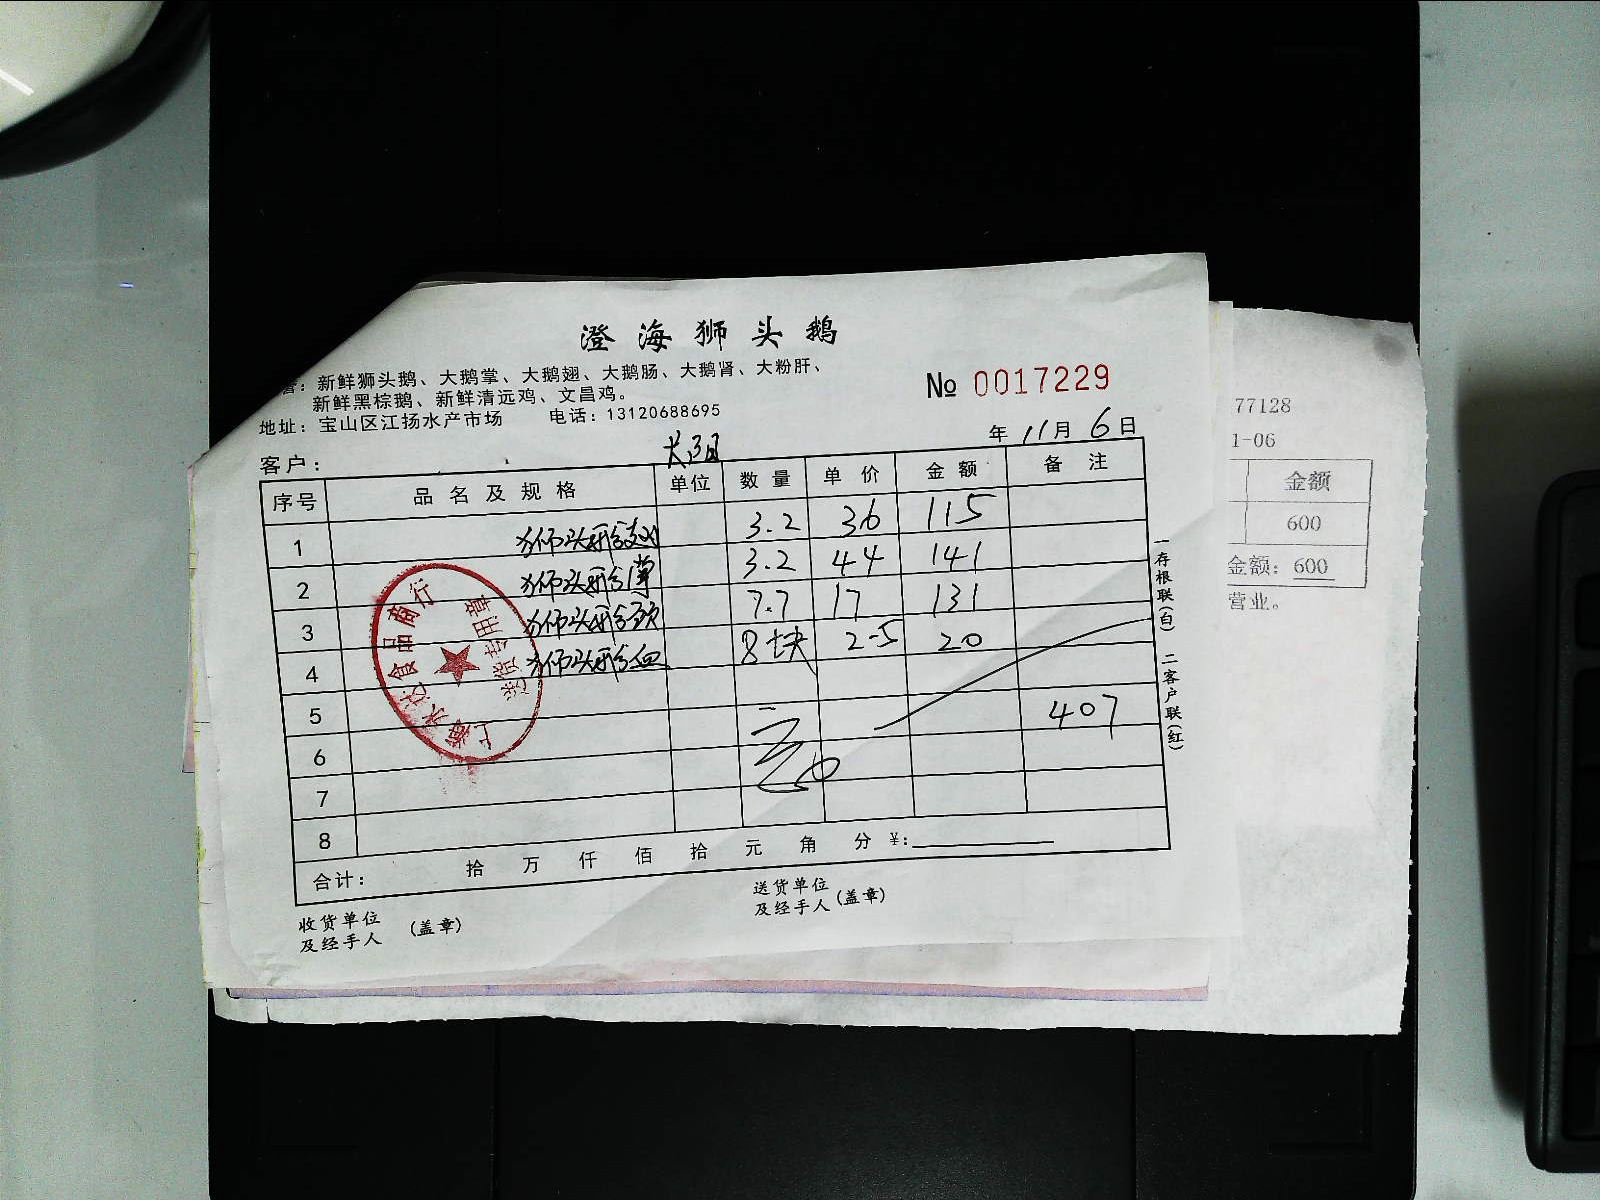 澄海狮头鹅
营：新鲜狮头鹅、大鹅掌、大鹅翅、大鹅肠、大鹅肾、大粉肝、
新鲜黑棕鹅、新鲜清远鸡、文昌鸡。
№ 0017229
地址：宝山区江扬水产市场 电话：13120688695
年 11月 6日
客户：
序号 品名及规格 单位 数量 单价 金额 备注
1 狮头鹅翅 3.2 36 115
2 狮头鹅 3.2 44 141
3 狮头鹅 7.7 17 131
4 狮头鹅血 8块 2.5 20
5 407
6
7
8
合计： 拾 万 仟 佰 拾 元 角 分 ¥：
收货单位
及经手人 (盖章)
送货单位
及经手人 (盖章)
一存根联(白) 二客户联(红)
食品商行
送货专用章
77128
1-06
金额
600
金额：600
营业。